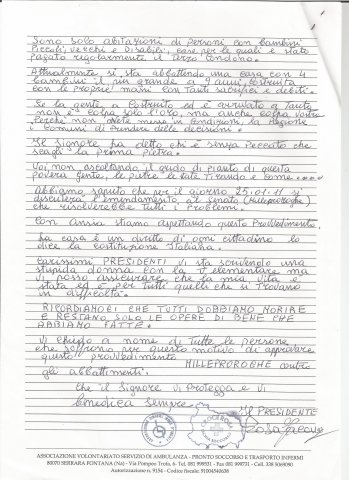 Sono solo abitazioni di persone con bambini
piccoli, vecchi e Disabili, case per le quali è stato
pagato regolarmente il Terzo Condono.
Attualmente si sta abbattendo una casa con 4
bambini il più grande a 9 anni, costruita
con le proprie mani con tanti sacrifici e debiti.
Se la gente, a costruito ed è arrivato a tanto
non è colpa solo loro, ma anche colpa vostra
perché non avete messo in condizioni, la Regione
i Comuni di prendere delle decisioni.
Il Signore, ha detto chi è senza peccato che
scagli la prima pietra.
Voi non ascoltando il grido di pianto di questa
povera gente, le pietre le state tirando e come....
Abbiamo saputo che per il giorno 25.01.11 si
discuterà l'emendamento al senato (Milleproroghe)
che risolverebbe tutti i problemi.
Con ansia stiamo aspettando questo provvedimento.
La casa è un diritto di ogni cittadino lo
dice la costituzione italiana.
Carissimi PRESIDENTI vi sta scrivendo una
stupida donna con la 5° elementare ma
vi posso assicurare che la mia vita è
stata ed è per tutti quelli che si trovano
in difficoltà.
RICORDIAMOCI CHE TUTTI DOBBIAMO MORIRE
E RESTANO SOLO LE OPERE DI BENE CHE
ABBIAMO FATTE.
Vi chiedo a nome di tutte le persone
che soffrono per questo motivo di approvare
questo provvedimento
MILLEPROROGHE contro
gli abbattimenti.
Che il Signore vi protegga e vi
benedica sempre.
Il PRESIDENTE
ASSOCIAZIONE VOLONTARIATO SERVIZIO DI AMBULANZA - PRONTO SOCCORSO E TRASPORTO INFERMI
80070 SERRARA FONTANA (Na) - Via Pompeo Trofa, 6- Tel. 081 999531 - Fax 081 999731 - Cell. 338 5069080
Autorizzazione n. 9154 - Codice fiscale: 91004940638